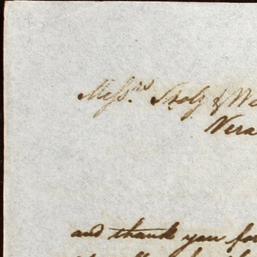 Mess.rs Stolz & We
Vera
and thank you for